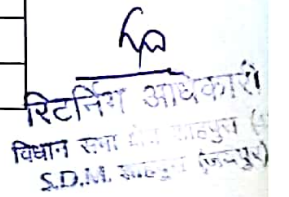 रिटर्निंग अधिकारी
विधान सभा क्षेत्र शाहपुरा
S.D.M. शाहपुरा (जयपुर)